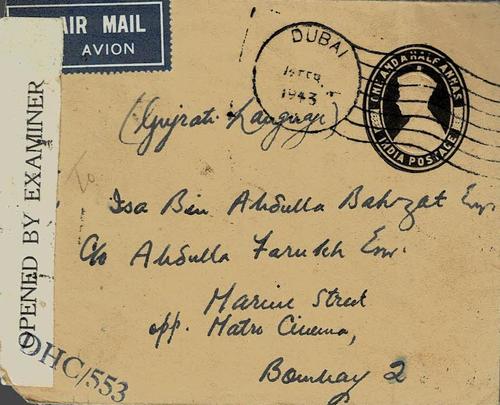 AIR MAIL
AVION
DUBAI
FEB
1943
ONE AND A HALF ANNAS
INDIA POSTAGE
OPENED BY EXAMINER
(Gujrati Language)
To
Isa Bin Abdulla Bahrzat Esq
C/o Abdulla Farukh Esq.
Marine Street
opp. Matro Cinema,
Bombay 2
DHC/553